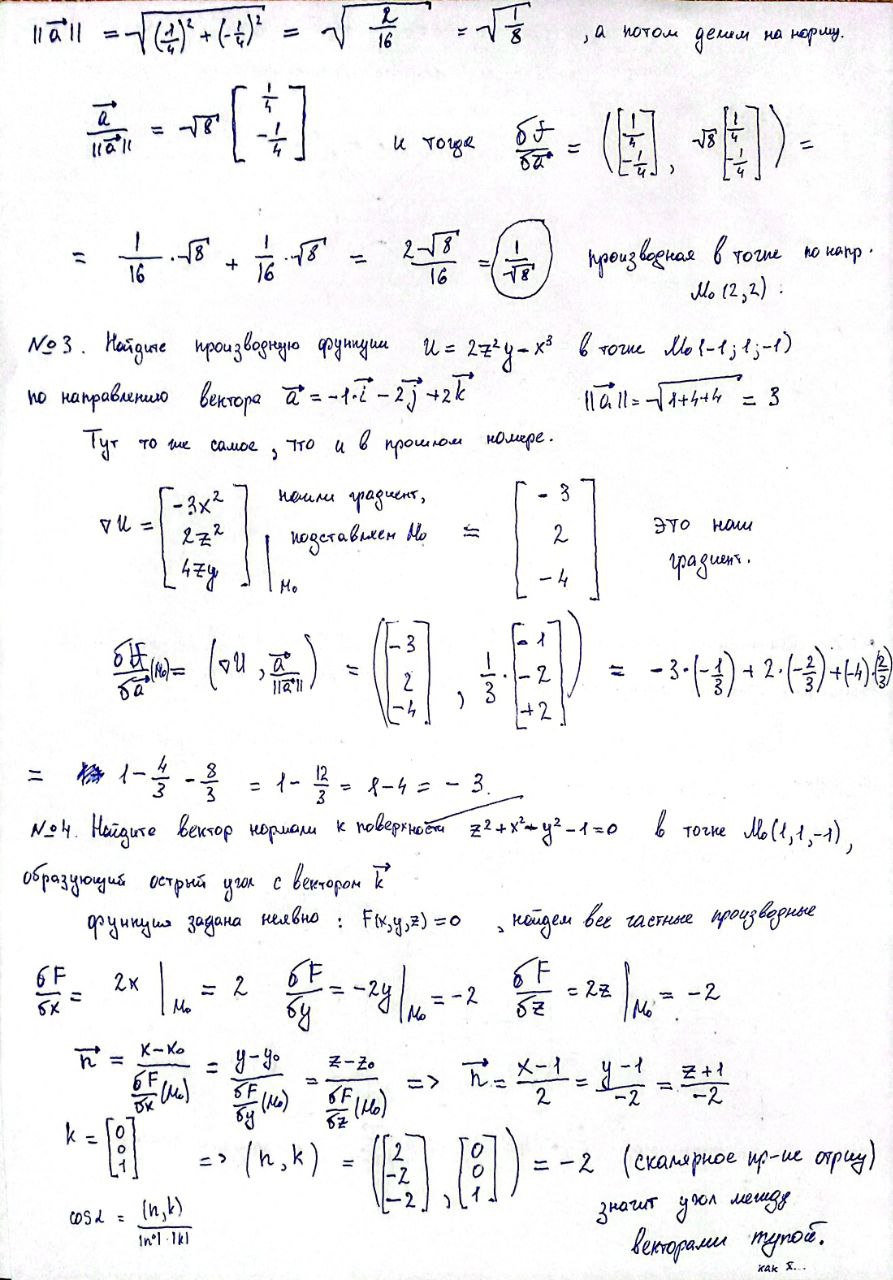 ||a⃗|| = √((1/4)² + (-1/4)²) = √(2/16) = √(1/8) , а потом делим на норму.
a⃗/||a⃗|| = √8 [1/4; -1/4] и тогда δf/δa⃗ = ([1/4; -1/4], √8 [1/4; -1/4]) =
= 1/16 · √8 + 1/16 · √8 = 2√8/16 = 1/√8 производная в точке по напр.
M₀(2,2).
№3. Найдите производную функции U = 2z²y - x³ в точке M₀(-1; 1; -1)
по направлению вектора a⃗ = -1·i⃗ - 2j⃗ + 2k⃗ ||a⃗|| = √(1+4+4) = 3
Тут то же самое, что и в прошлом номере.
∇U = [-3x²; 2z²; 4zy] |M₀ нашли градиент, подставляем M₀ = [-3; 2; -4] это наш градиент.
δU/δa⃗ (M₀) = (∇U, a⃗/||a⃗||) = ([-3; 2; -4], 1/3 · [-1; -2; +2]) = -3·(-1/3) + 2·(-2/3) + (-4)·(2/3)
= 1 - 4/3 - 8/3 = 1 - 12/3 = 1 - 4 = -3.
№4. Найдите вектор нормали к поверхности z² + x² - y² - 1 = 0 в точке M₀(1,1,-1),
образующий острый угол с вектором k⃗
функция задана неявно : F(x,y,z) = 0 , найдем все частные производные
δF/δx = 2x |M₀ = 2 δF/δy = -2y |M₀ = -2 δF/δz = 2z |M₀ = -2
n⃗ = (x-x₀)/(δF/δx (M₀)) = (y-y₀)/(δF/δy (M₀)) = (z-z₀)/(δF/δz (M₀)) => n⃗ = (x-1)/2 = (y-1)/-2 = (z+1)/-2
k = [0; 0; 1] => (n, k) = ([2; -2; -2], [0; 0; 1]) = -2 (скалярное пр-ие отриц)
cosα = (n,k)/|n|·|k| значит угол между
векторами тупой.
как я...